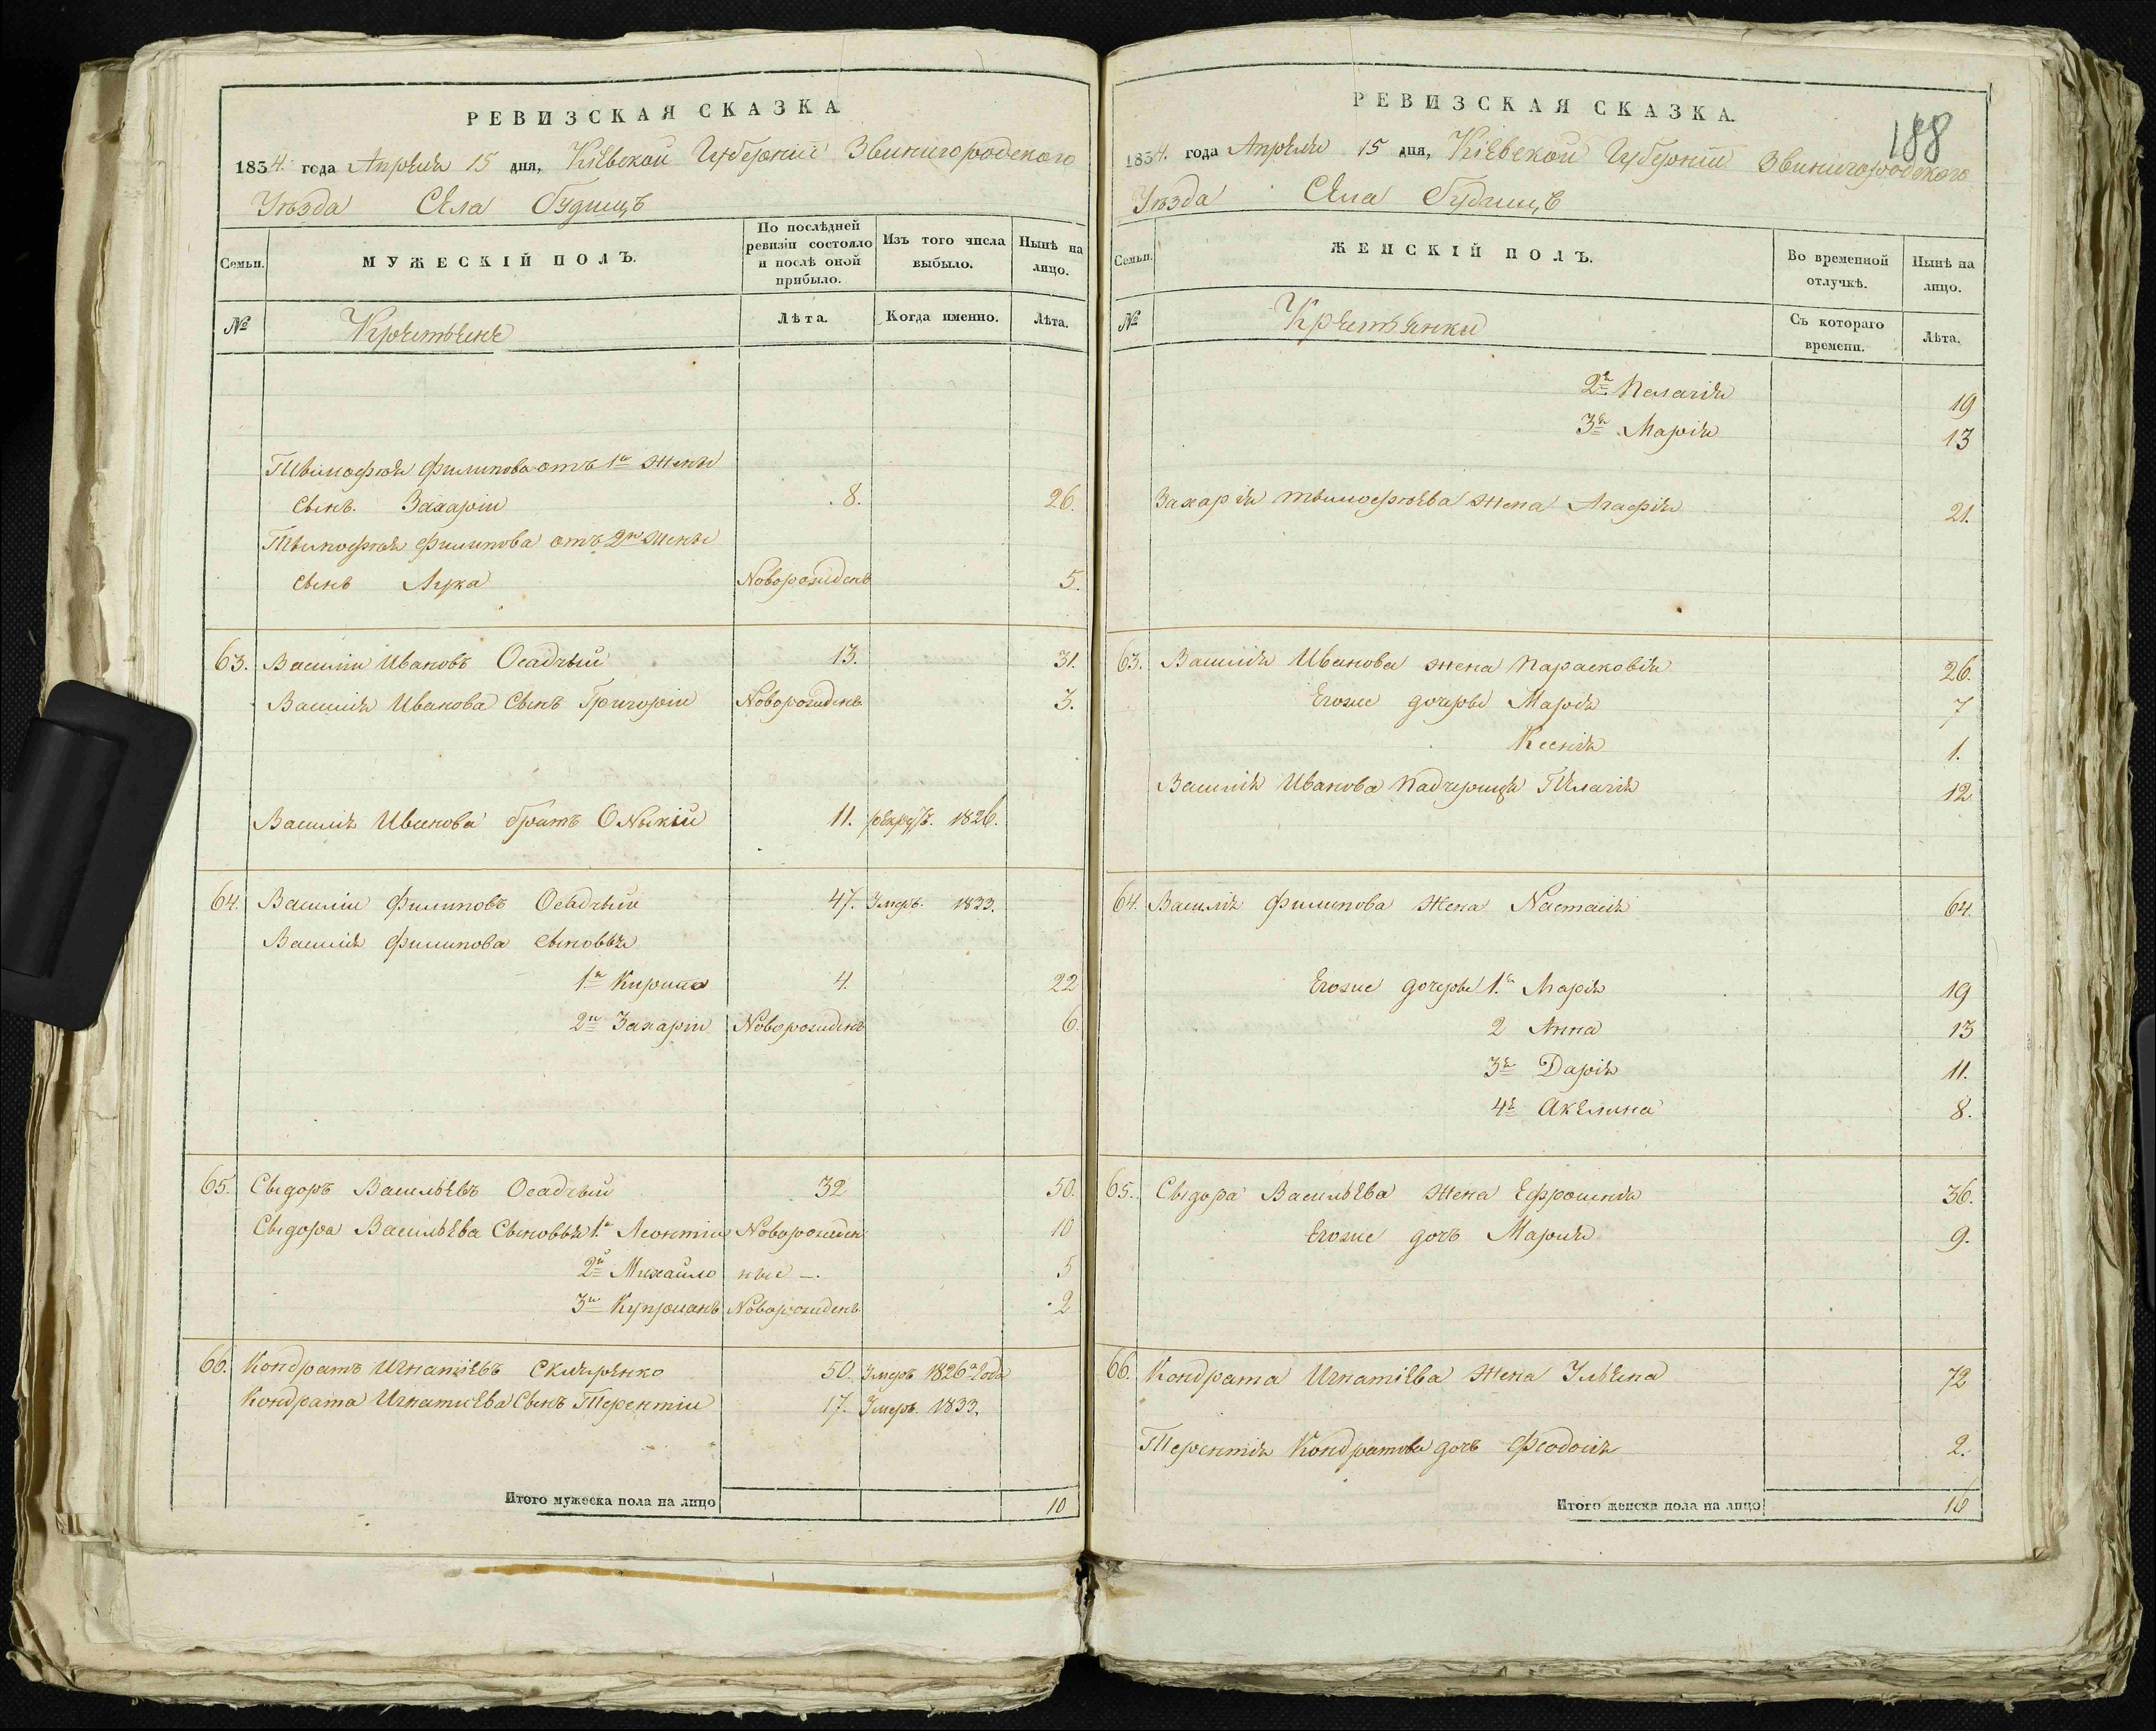 РЕВИЗСКАЯ СКАЗКА
1834. года Апреля 15 дня, Кіевской Губерніи Звинигородского
Уѣзда Села Будищъ
Семьи.
МУЖЕСКІЙ ПОЛЪ.
По послѣдней ревизіи состояло и послѣ оной прибыло.
Изъ того числа выбыло.
Нынѣ на лицо.
№
Крестьене
Лѣта.
Когда именно.
Лѣта.
Тымофея Филипова отъ 1й жены
сынъ. Захарій 8. 26.
Тымофея Филипова отъ 2й жены
сынъ Лука Новорожденъ 5.
63. Василій Ивановъ Осадчый 13. 31.
Василія Иванова Сынъ Григорій Новорожденъ 3.
Василія Иванова братъ 11. рекрутъ. 1826.
64. Василій Филиповъ Осадчый 47. Умеръ. 1833.
Василія Филипова сыновья
1й Кирило 4. 22
2й Захарій Новорожденъ 6.
65. Сыдоръ Васильевъ Осадчый 32 50.
Сыдора Васильева Сыновья 1й Леонтій Новорожден 10
2й Михайло ные —. 5
3й Купріянъ Новорожденъ 2
66. Кондратъ Игнатіевъ 50. Умеръ 1826 года
Кондрата Игнатиева Сынъ Терентій 17. Умеръ. 1833.
Итого мужеска пола на лицо 10
РЕВИЗСКАЯ СКАЗКА.
188
1834. года Апреля 15 дня, Кіевской Губерніи Звинигородского
Уѣзда Села Будищъ
Семьи.
ЖЕНСКІЙ ПОЛЪ.
Во временной отлучкѣ.
Нынѣ на лицо.
№
Крестьянки
Съ котораго времени.
Лѣта.
2я Пелагія 19
3я Марія 13
Захарія Тымофеева жена Агафія 21.
63. Василія Иванова жена Парасковія 26.
Егоже дочеры Марія 7
Ксенія 1.
Василія Иванова Падчерица Пелагія 12
64. Василія Филипова жена Настасія 64.
Егоже дочеры 1я Марія 19
2 Анна 13
3я Дарія 11.
4я Акелина 8.
65. Сыдора Васильева жена Ефросинія 36.
Егоже дочъ Марія 9.
66. Кондрата Игнатіева жена Ульяна 72
Терентія Кондратова дочъ Феодосія 2.
Итого женска пола на лицо 16